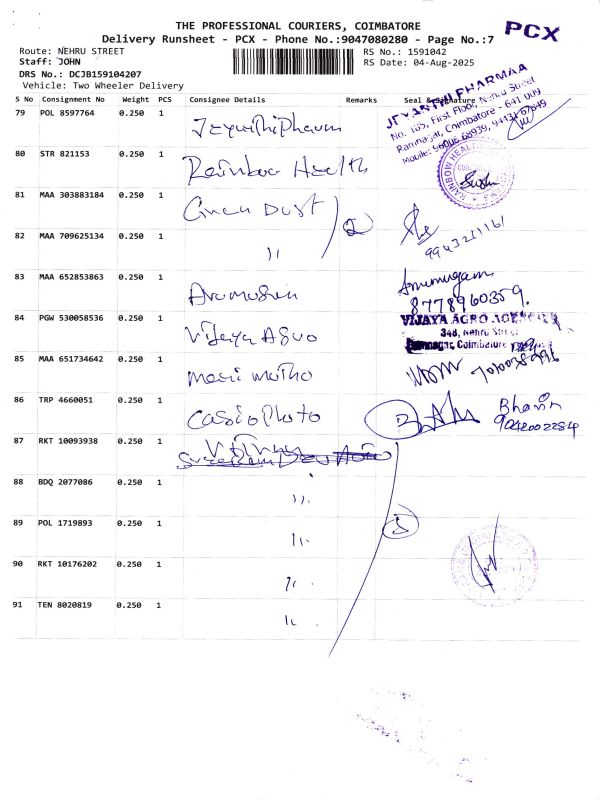 THE PROFESSIONAL COURIERS, COIMBATORE
PCX
Delivery Runsheet - PCX - Phone No.:9047080280 - Page No.:7
Route: NEHRU STREET
RS No.: 1591042
Staff: JOHN
RS Date: 04-Aug-2025
DRS No.: DCJB159104207
Vehicle: Two Wheeler Delivery
S No Consignment No Weight PCS Consignee Details Remarks Seal & Signature
JEYANTHI PHARMAA
No. 165, First Floor, Nehru Street
Ramnagar, Coimbatore - 641 009
79 POL 8597764 0.250 1
80 STR 821153 0.250 1 Rainbow Health
RAINBOW HEALTH
81 MAA 303883184 0.250 1 Green Dust
2
9943211161
82 MAA 709625134 0.250 1 "
83 MAA 652853863 0.250 1
Arumugam
8778960359.
84 PGW 530058536 0.250 1 Vijaya Agro
VIJAYA AGRO AGENCY
348, Nehru Street
Ramnagar, Coimbatore
85 MAA 651734642 0.250 1
86 TRP 4660051 0.250 1 Casio Photo
Bhavin
9042002284
87 RKT 10093938 0.250 1
88 BDQ 2077086 0.250 1 ".
89 POL 1719893 0.250 1 ".
5
90 RKT 10176202 0.250 1 ".
91 TEN 8020819 0.250 1 ".